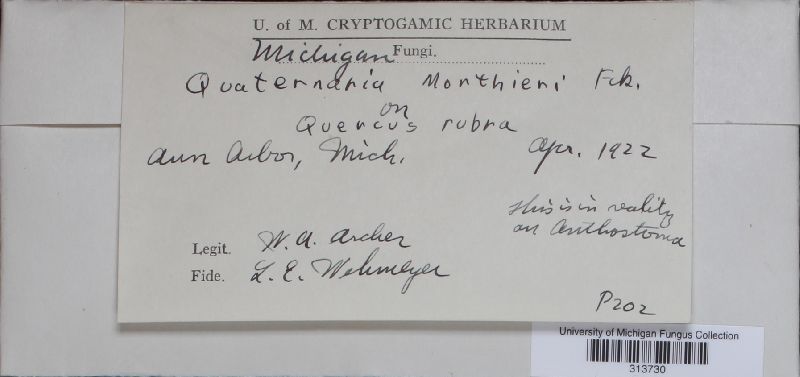 U. of M. CRYPTOGAMIC HERBARIUM
Michigan Fungi.
Quaternaria Morthieri Fck.
on
Quercus rubra
Ann Arbor, Mich. Apr. 1922
this is in reality
an Anthostoma
Legit. W. A. Archer
Fide. L. E. Wehmeyer
P202
University of Michigan Fungus Collection
313730